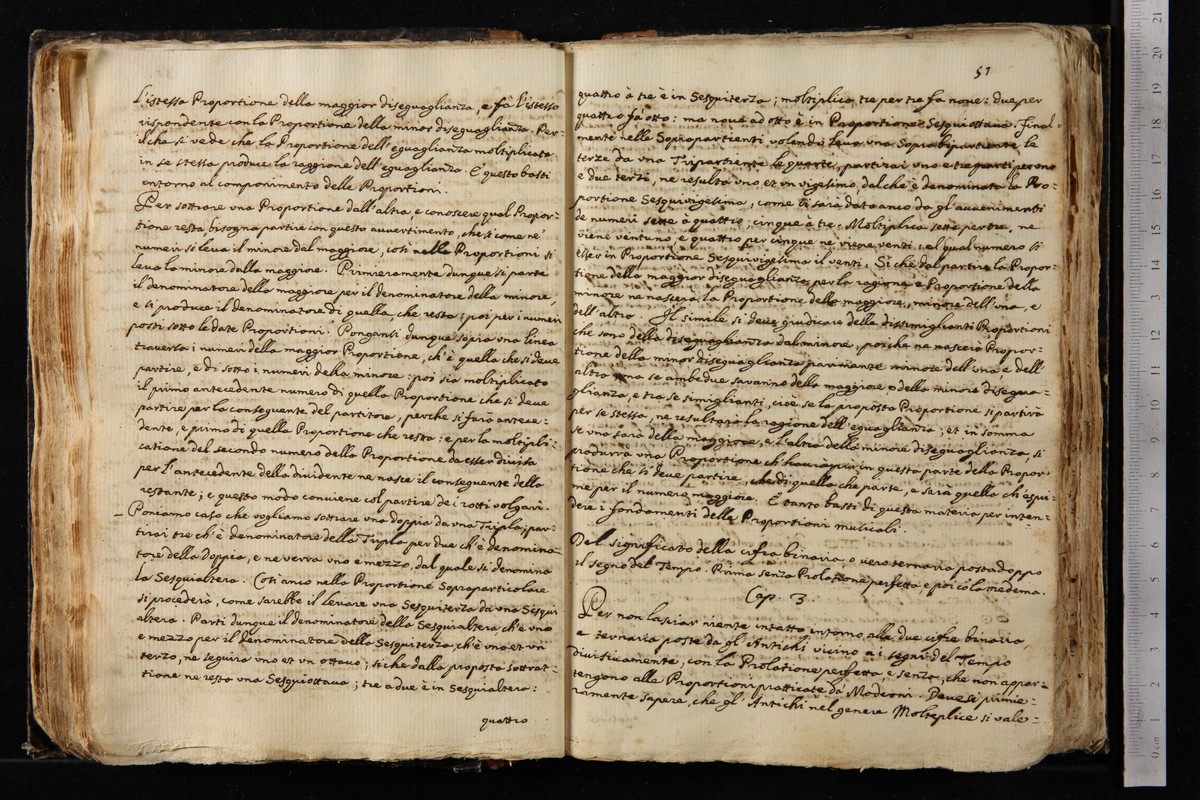 L'istessa Proportione della maggior diseguaglianza, e fà l'istesso
rispondente con la Proportione della minor diseguaglianza. Per-
ilche si vede che la Proportione dell'eguaglianza moltiplicata
in se stessa produce la raggione dell'eguaglianza. E questo basti
intorno al componimento delle Proportioni.
Per sottrare vna Proportione dall'altra, e conoscere qual Propor-
tione resta, bisogna partire con questo auuertimento, che si come ne'
numeri si leua il minore dal maggiore, così nelle Proportioni si
leua la minore dalla maggiore. Primieramente dunque si parte
il denominatore della maggiore per il denominatore della minore,
e si produce il denominatore di quella, che resta; poi per i numeri
posti sotto le date Proportioni. Ponganti dunque sopra vna linea
trauersa i numeri della maggior Proportione, ch'è quella che si deue
partire, e di sotto i numeri della minore: poi sia moltiplicato
il primo antecedente numero di quella Proportione che si deue
partire per la conseguente del partitore, perche si farà antece-
dente, e primo di quella Proportione che resta: e per la moltipli-
catione del secondo numero della Proportione da esser diuisa
per l'antecedente della diuidente ne nasce il conseguente della
restante; e questo modo conuiene col partire de i rotti volgari.
Poniamo caso che vogliamo sottrare vna doppia da vna Tripla, par-
tirai tre ch'è denominatore della Tripla per due ch'è denomina-
tore della doppia, e ne verra vno e mezzo, dal quale si denomina
la Sesquialtera. Così anco nella Proportione Sopraparticolare
si procederà, come sarebbe il leuare vna Sesquiterza da vna Sesqui-
altera. Parti dunque il denominatore della Sesquialtera ch'è vno
e mezzo per il denominatore della Sesquiterza, ch'è vno et vn
terzo, ne seguira vno et vn ottauo; siche dalla proposta sottrat-
tione ne resta vna Sesquiottaua; tre a due è in Sesquialtera:
quattro
51
quattro à tre è in Sesquiterza; moltiplica tre per tre fa noue: due per
quattro fà otto: ma noue ad otto è in Proportione Sesquiottaua. Final-
mente nelle Soprapartienti volendo leua vna Soprabipartiente le
terze da vna Tripartiente le quarte, partirai vno e tre parti per vno
e due terzi, ne resulta vno et vn vigesimo, dal che è denominata la Pro-
portione Sesquivigesima, come ti sarà dato anco da gl'auuenimenti
de numeri sette à quattro; cinque à tre. Moltiplica sette per tre, ne
viene ventuno, e quattro per cinque ne viene venti: al qual numero si
esser in Proportione Sesquivigesima il venti. Si che dal partir la Propor-
tione della maggior diseguaglianza per la ragione e Proportione della
minore ne nascerà la Proportione della maggiore, minore dell'una, e
dell'altro. Il simile si deue giudicare delle dissimiglianti Proportioni
che sono della diseguaglianza dal minore, poiche ne nascerà Propor-
tione della minor diseguaglianza parimente minore dell'una e dell'
altro: ma se ambedue saranno della maggiore o della minore disegua-
glianza, e tra se simiglianti, cioè se la proposta Proportione si partira
per se stessa, ne resulterà la ragione dell'eguaglianza; et in somma
se vna sarà della maggiore, e l'altra della minore diseguaglianza, si
produrra vna Proportione ch'haurà più in questa parte della Propor-
tione che si deue partire, che di quella che parte, e sarà quella ch'espri-
me per il numero maggiore. E tanto basti di questa materia per inten-
dere i fondamenti delle Proportioni musicali.
Del significato della cifra binaria, o uero ternaria posta doppo
il segno del Tempo. Prima senza Prolatione perfetta, e poi cō la medema.
Cap. 3.
Per non lasciar niente intatto intorno alle due cifre binaria,
e ternaria poste da gl'Antichi vicino a i segni del Tempo
diuisicamente, con la Prolatione perfetta, e senza, che non appar-
tengono alle Proportioni pratticate da Moderni. Deuesi primie-
ramente sapere, che gl'Antichi nel genere Molteplice si vale-